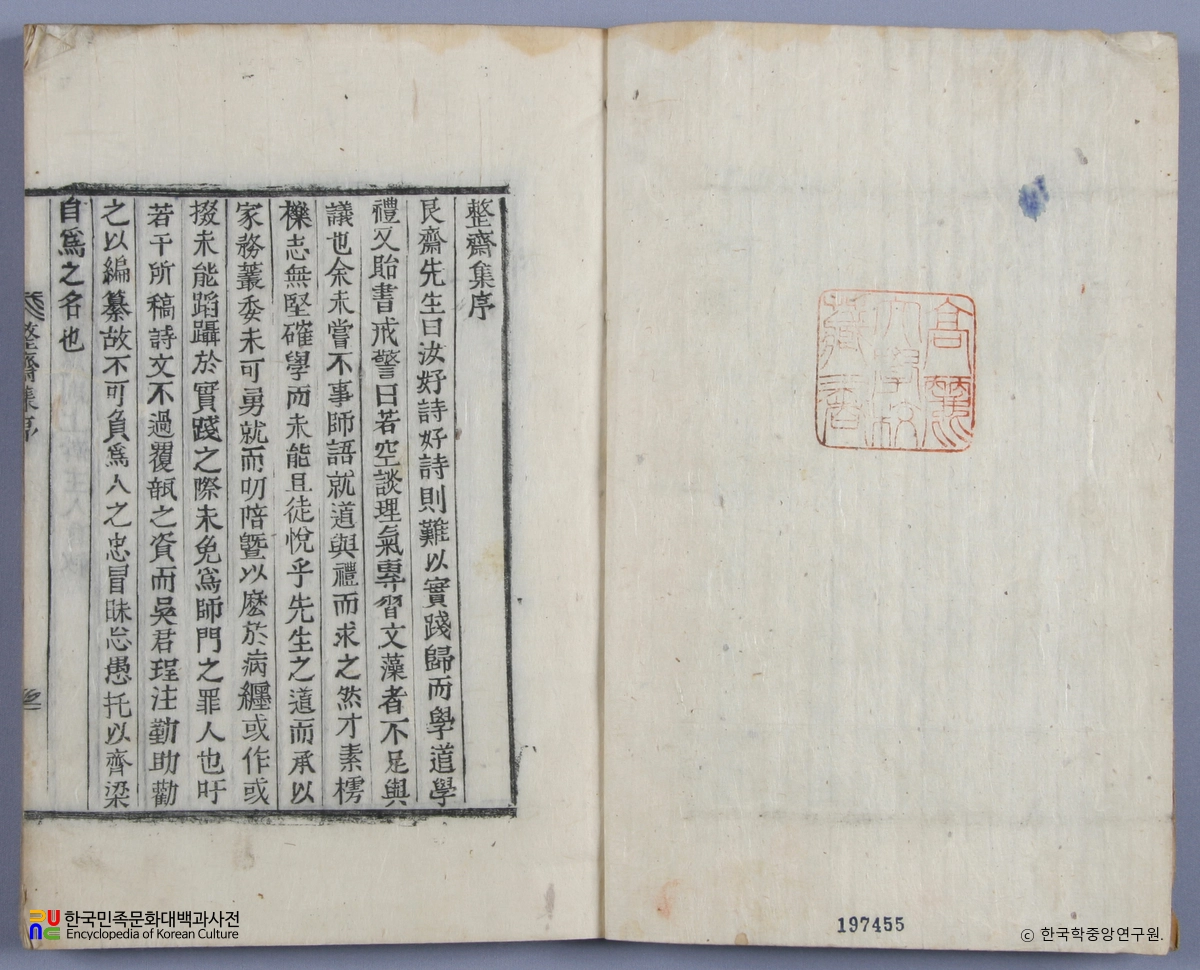 整齋集序
艮齋先生曰汝好詩好詩則難以實踐歸而學道學
禮又貽書戒警曰若空談理氣專習文藻者不足與
議也余未嘗不事師語就道與禮而求之然才素樗
櫟志無堅確學而未能且徒悅乎先生之道而承以
家務叢委未可勇就而叨陪曁以麽於病纒或作或
掇未能蹈躡於實踐之際未免爲師門之罪人也吁
若干所稿詩文不過覆瓿之資而吳君珵注勤助勸
之以編纂故不可負爲人之忠冒昧忘愚托以齊梁
自爲之名也
整齋集序
高麗
大學校
藏書
197455
한국민족문화대백과사전
Encyclopedia of Korean Culture
ⓒ 한국학중앙연구원.